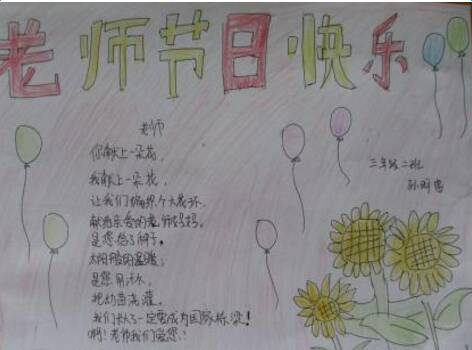 老师节日快乐
老师
你献上一朵花,
我献上一朵花,
让我们编织个大花环.
献给亲爱的老师妈妈.
是您给了俩子.
太阳般的温暖,
是您用汗水,
把幼苗浇灌.
我们长大了一定要成为国际栋梁!
啊!老师我们爱您!
三年级二班
孙明